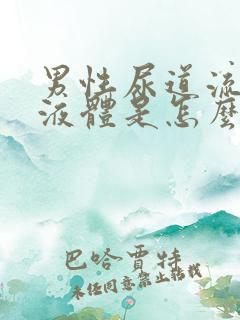 男性尿道流
液體是怎麼
巴哈賈特
未任同意禁止轉載